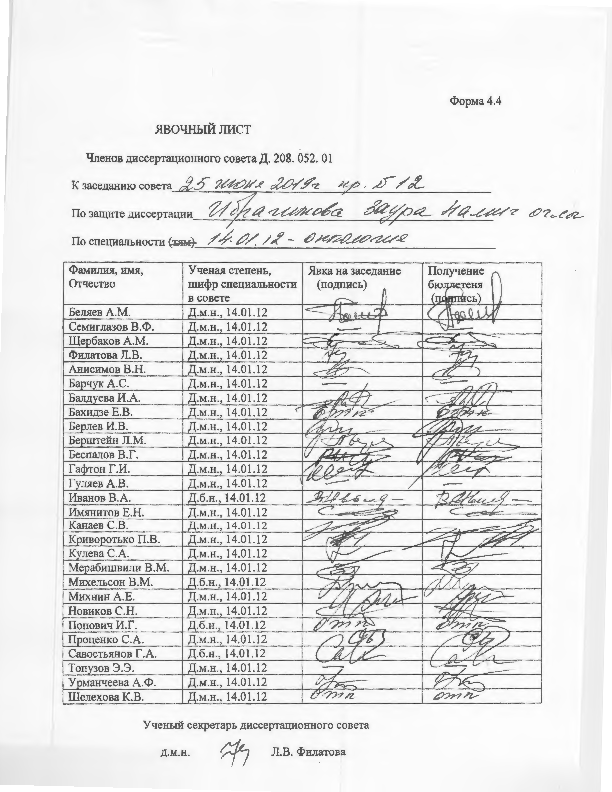 Форма 4.4
ЯВОЧНЫЙ ЛИСТ
Членов диссертационного совета Д. 208. 052. 01
К заседанию совета 25 июня 2019г пр. №12
По защите диссертации Ибрагимова Заура Налин оглы
По специальности (хим) 14.01.12 - онкология
Фамилия, имя, Отчество Ученая степень, шифр специальности в совете Явка на заседание (подпись) Получение бюллетеня (подпись)
Беляев А.М. Д.м.н., 14.01.12
Семиглазов В.Ф. Д.м.н., 14.01.12
Щербаков А.М. Д.м.н., 14.01.12
Филатова Л.В. Д.м.н., 14.01.12
Анисимов В.Н. Д.м.н., 14.01.12
Барчук А.С. Д.м.н., 14.01.12
Балдуева И.А. Д.м.н., 14.01.12
Бахидзе Е.В. Д.м.н., 14.01.12 отп
Берлев И.В. Д.м.н., 14.01.12
Берштейн Л.М. Д.м.н., 14.01.12
Беспалов В.Г. Д.м.н., 14.01.12
Гафтон Г.И. Д.м.н., 14.01.12
Гуляев А.В. Д.м.н., 14.01.12
Иванов В.А. Д.б.н., 14.01.12
Имянитов Е.Н. Д.м.н., 14.01.12
Канаев С.В. Д.м.н., 14.01.12
Криворотько П.В. Д.м.н., 14.01.12
Кулева С.А. Д.м.н., 14.01.12
Мерабишвили В.М. Д.м.н., 14.01.12
Михельсон В.М. Д.б.н., 14.01.12
Михнин А.Е. Д.м.н., 14.01.12
Новиков С.Н. Д.м.н., 14.01.12
Попович И.Г. Д.б.н., 14.01.12 отп отп
Проценко С.А. Д.м.н., 14.01.12
Савостьянов Г.А. Д.б.н., 14.01.12
Топузов Э.Э. Д.м.н., 14.01.12
Урманчеева А.Ф. Д.м.н., 14.01.12
Шелехова К.В. Д.м.н., 14.01.12 отп отп
Ученый секретарь диссертационного совета
д.м.н. Л.В. Филатова